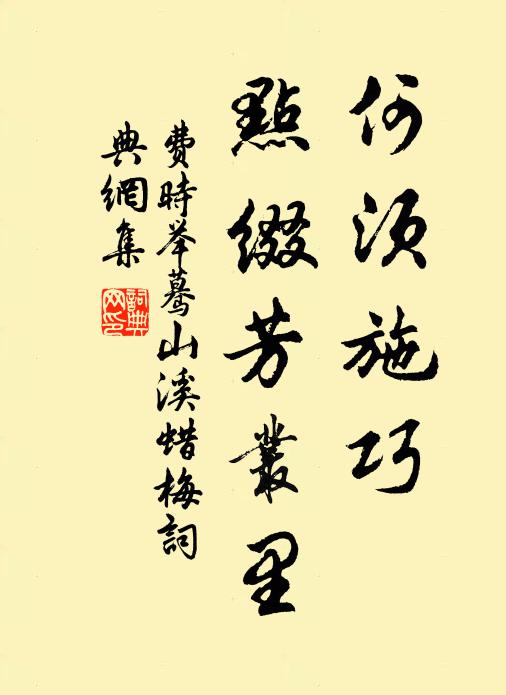 何須施巧
點綴芳叢里
費時举蓦山溪蜡梅詞
典網集
詞典網印